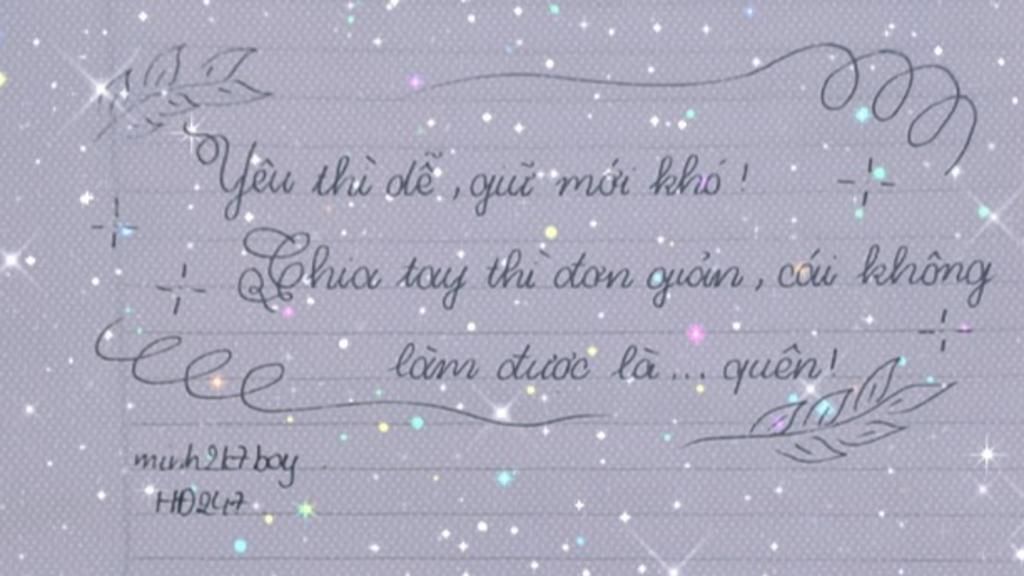 Yêu thì dễ, giữ mới khó!
Chia tay thì đơn giản, cái không
làm được là... quên!
minh2k7boy
HD247